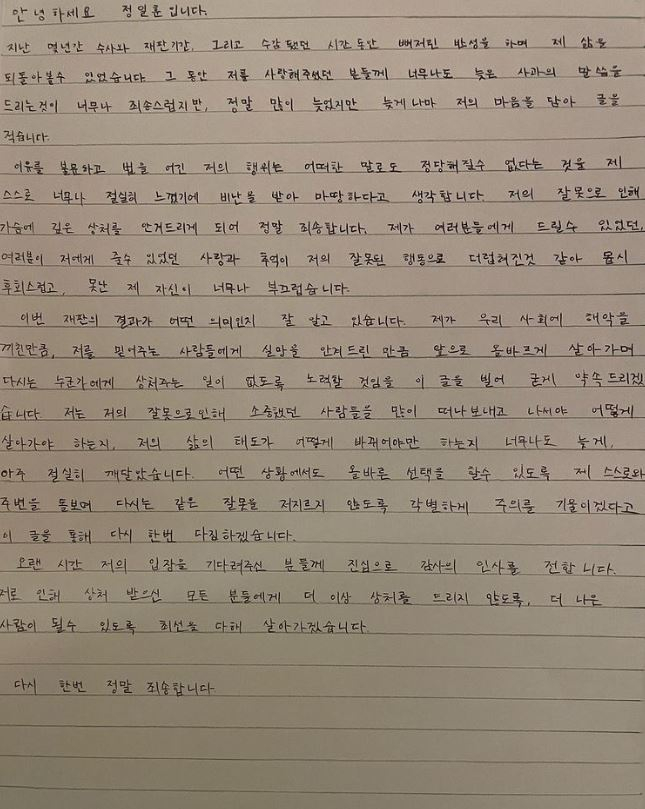 안녕하세요 정일훈입니다.
지난 몇년간 수사와 재판기간, 그리고 수감됐던 시간동안 뼈저린 반성을 하며 제 삶을
되돌아볼수 있었습니다. 그 동안 저를 사랑해주셨던 분들께 너무나도 늦은 사과의 말씀을
드리는것이 너무나 죄송스럽지만, 정말 많이 늦었지만 늦게나마 저의 마음을 담아 글을
적습니다.
이유를 불문하고 법을 어긴 저의 행위는 어떠한 말로도 정당해질수 없다는 것을 제
스스로 너무나 절실히 느꼈기에 비난을 받아 마땅하다고 생각합니다. 저의 잘못으로 인해
가슴에 깊은 상처를 안겨드리게 되어 정말 죄송합니다. 제가 여러분들에게 드릴수 있었던,
여러분이 저에게 줄수 있었던 사랑과 추억이 저의 잘못된 행동으로 더럽혀진것 같아 몹시
후회스럽고, 못난 제 자신이 너무나 부끄럽습니다.
이번 재판의 결과가 어떤 의미인지 잘 알고 있습니다. 제가 우리 사회에 해악을
끼친만큼, 저를 믿어주는 사람들에게 실망을 안겨드린 만큼 앞으로 올바르게 살아가며
다시는 누군가에게 상처주는 일이 없도록 노력할 것임을 이 글을 빌어 굳게 약속드리겠
습니다. 저는 저의 잘못으로인해 소중했던 사람들을 많이 떠나보내고 나서야 어떻게
살아가야 하는지, 저의 삶의 태도가 어떻게 바뀌어야만 하는지 너무나도 늦게,
아주 절실히 깨달았습니다. 어떤 상황에서도 올바른 선택을 할수 있도록 제 스스로와
주변을 돌보며 다시는 같은 잘못을 저지르지 않도록 각별하게 주의를 기울이겠다고
이 글을 통해 다시 한번 다짐하겠습니다.
오랜 시간 저의 입장을 기다려주신 분들께 진심으로 감사의 인사를 전합니다.
저로 인해 상처 받으신 모든 분들에게 더 이상 상처를 드리지 않도록, 더 나은
사람이 될수 있도록 최선을 다해 살아가겠습니다.
다시 한번 정말 죄송합니다.